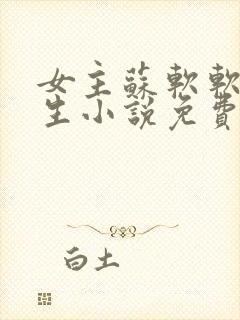 女主蘇軟軟
生小說免費
白土